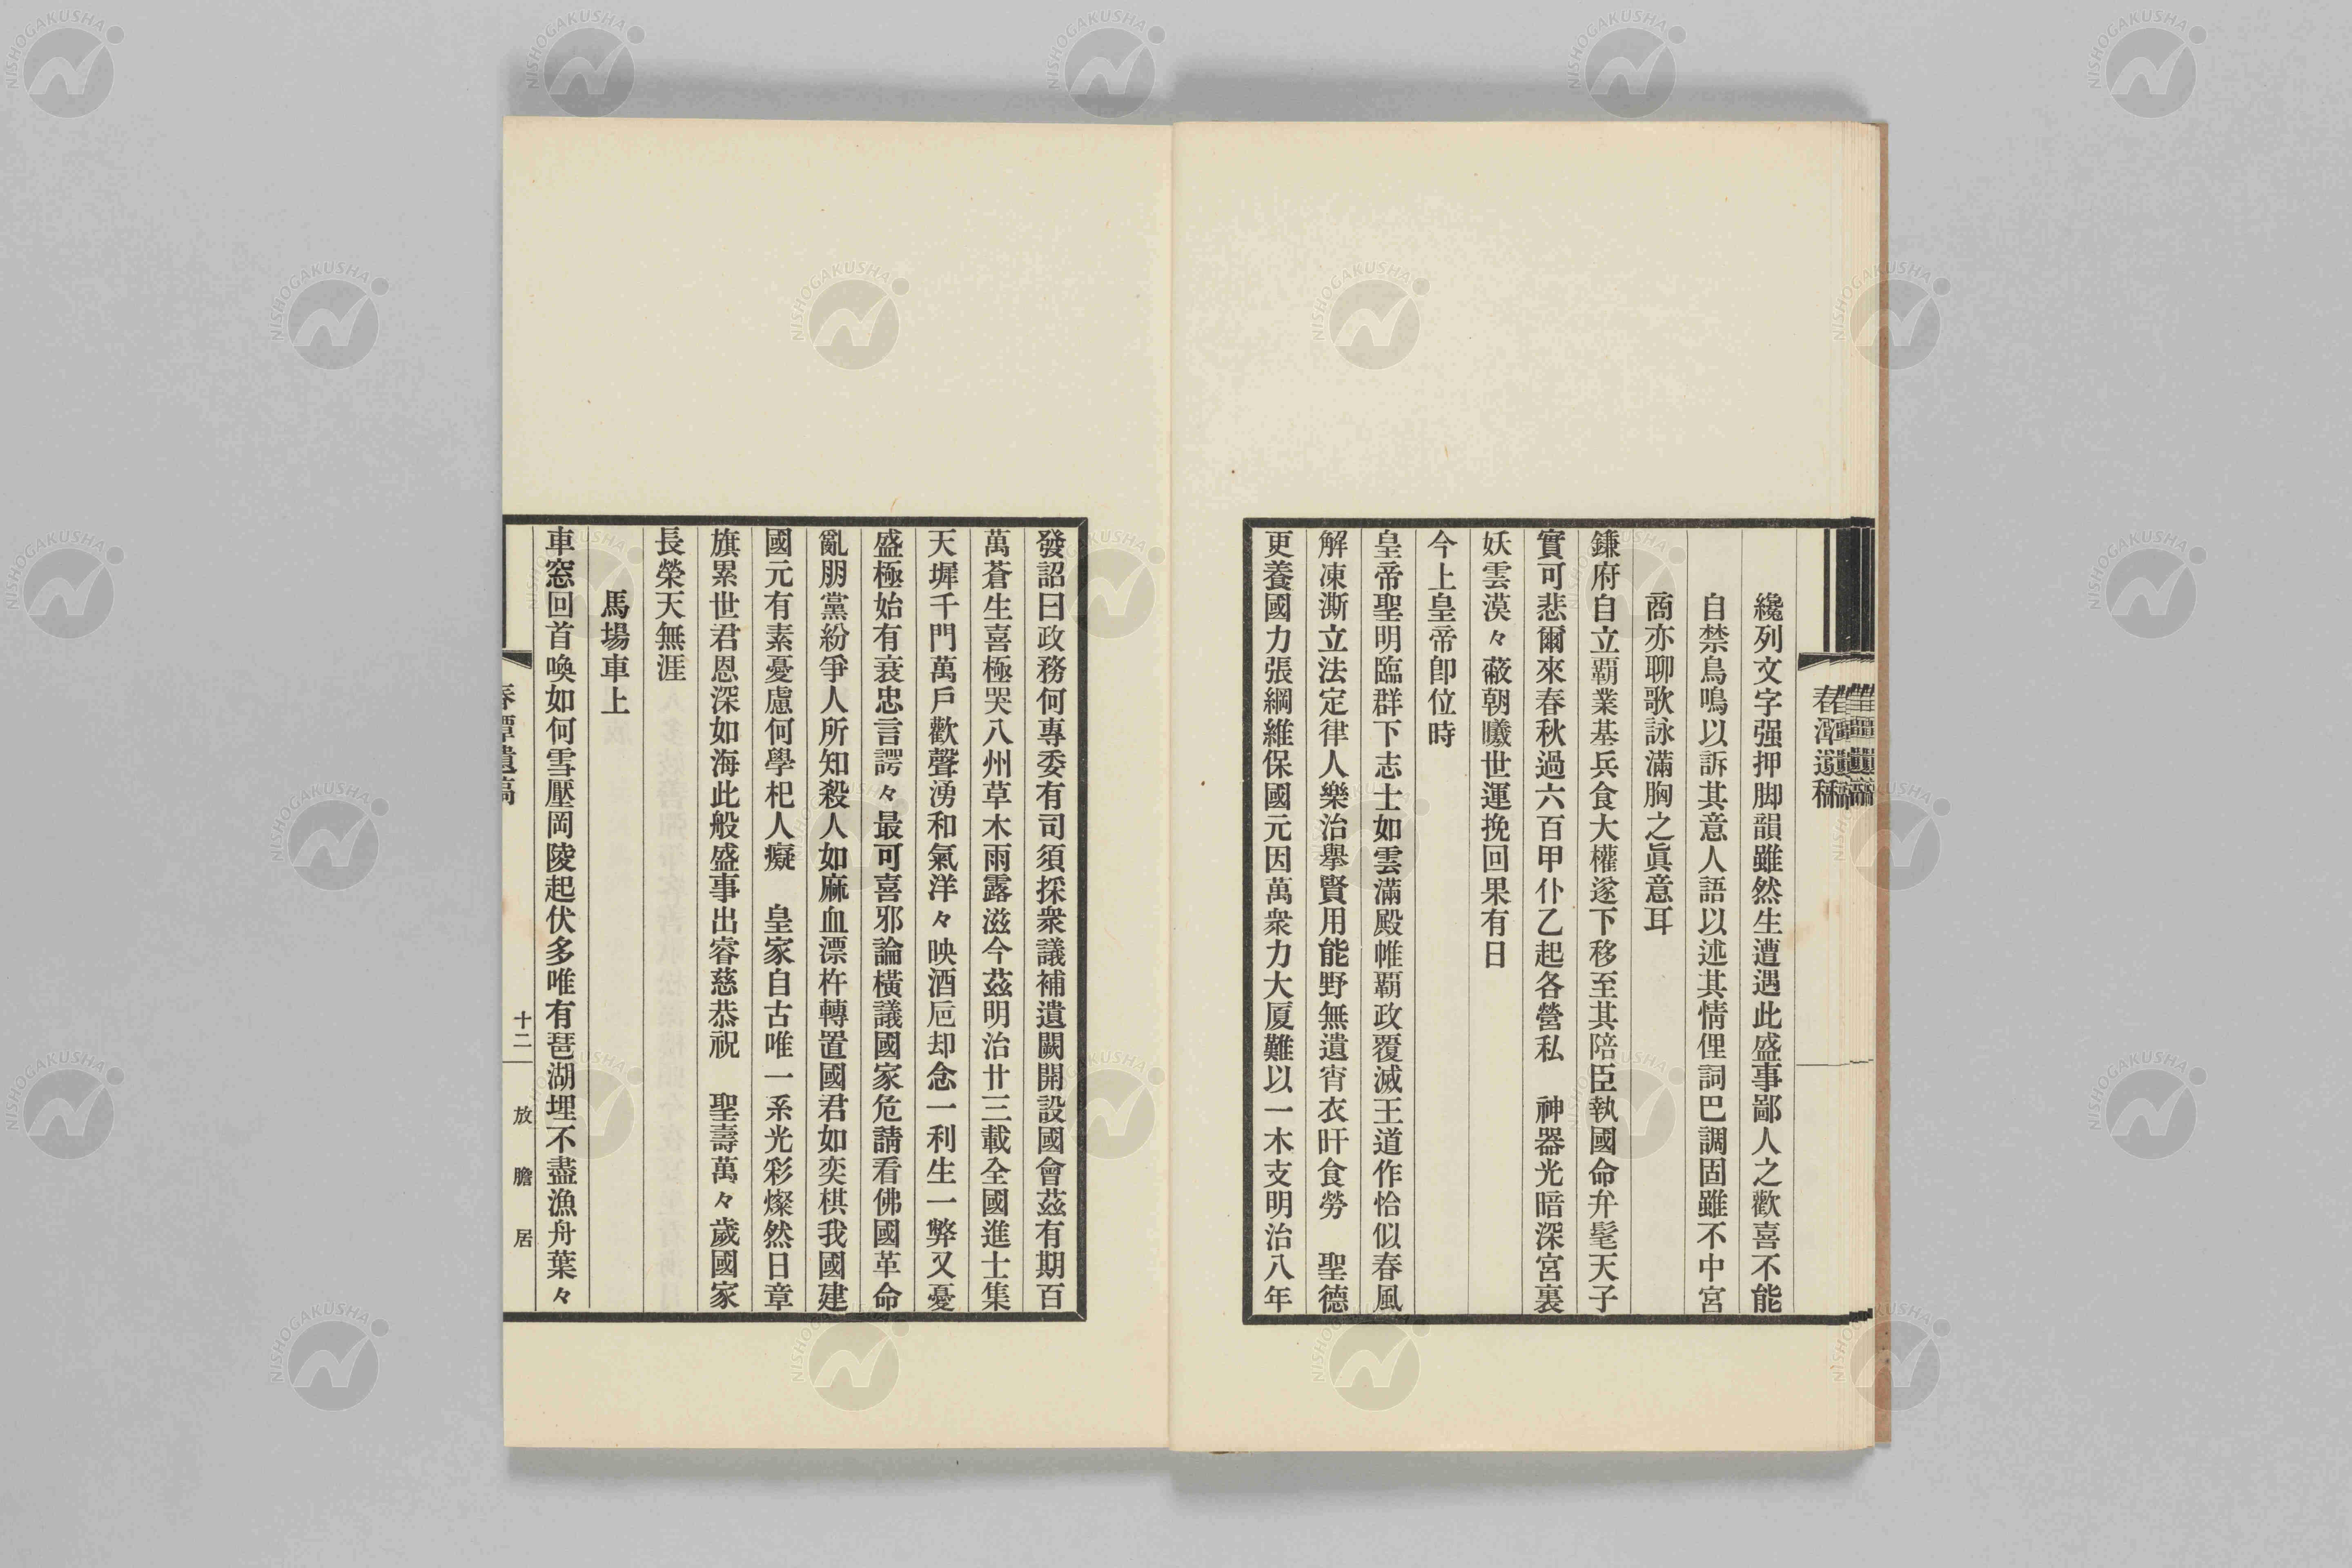 春潭遺稿
纔列文字强押脚韻雖然生遭遇此盛事鄙人之歡喜不能
自禁鳥鳴以訴其意人語以述其情俚詞巴調固雖不中宮
商亦聊歌詠滿胸之眞意耳
鎌府自立覇業基兵食大權遂下移至其陪臣執國命弁髦天子
實可悲爾來春秋過六百甲仆乙起各營私　神器光暗深宮裏
妖雲漠々蔽朝曦世運挽回果有日
今上皇帝卽位時
皇帝聖明臨群下志士如雲滿殿帷覇政覆滅王道作恰似春風
解凍澌立法定律人樂治擧賢用能野無遺宵衣旰食勞　聖德
更養國力張綱維保國元因萬衆力大厦難以一木支明治八年
發詔曰政務何專委有司須採衆議補遺闕開設國會茲有期百
萬蒼生喜極哭八州草木雨露滋今茲明治廿三載全國進士集
天墀千門萬戶歡聲湧和氣洋々映酒巵却念一利生一弊又憂
盛極始有衰忠言諤々最可喜邪論橫議國家危請看佛國革命
亂朋黨紛爭人所知殺人如麻血漂杵轉置國君如奕棋我國建
國元有素憂慮何學杞人癡　皇家自古唯一系光彩燦然日章
旗累世君恩深如海此般盛事出睿慈恭祝　聖壽萬々歲國家
長榮天無涯
馬場車上
車窓回首喚如何雪壓岡陵起伏多唯有琶湖埋不盡漁舟葉々
春潭遺稿
十二
放膽居
NISHOGAKUSHA